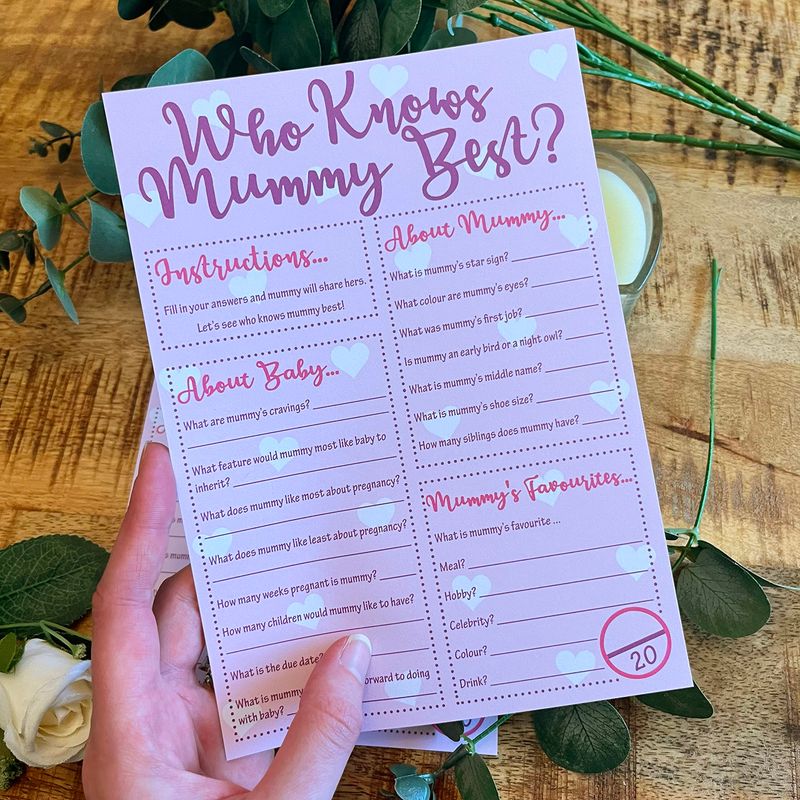 Who Knows
Mummy Best?
Instructions...
Fill in your answers and mummy will share hers.
Let's see who knows mummy best!
About Baby...
What are mummy's cravings?
What feature would mummy most like baby to
inherit?
What does mummy like most about pregnancy?
What does mummy like least about pregnancy?
How many weeks pregnant is mummy?
How many children would mummy like to have?
What is the due date?
What is mummy forward to doing
with baby?
About Mummy...
What is mummy's star sign?
What colour are mummy's eyes?
What was mummy's first job?
Is mummy an early bird or a night owl?
What is mummy's middle name?
What is mummy's shoe size?
How many siblings does mummy have?
Mummy's Favourites...
What is mummy's favourite ...
Meal?
Hobby?
Celebrity?
Colour?
Drink?
20